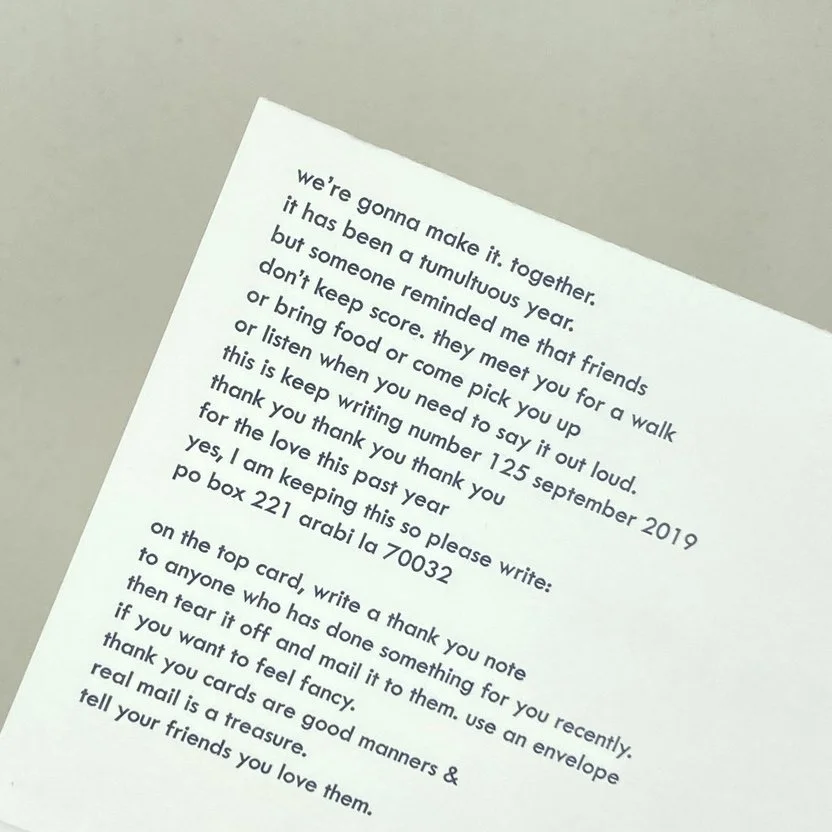 we're gonna make it. together.
it has been a tumultuous year.
but someone reminded me that friends
don't keep score. they meet you for a walk
or bring food or come pick you up
or listen when you need to say it out loud.
this is keep writing number 125 september 2019
thank you thank you thank you
for the love this past year
yes, I am keeping this so please write:
po box 221 arabi la 70032
on the top card, write a thank you note
to anyone who has done something for you recently.
then tear it off and mail it to them. use an envelope
if you want to feel fancy.
thank you cards are good manners &
real mail is a treasure.
tell your friends you love them.